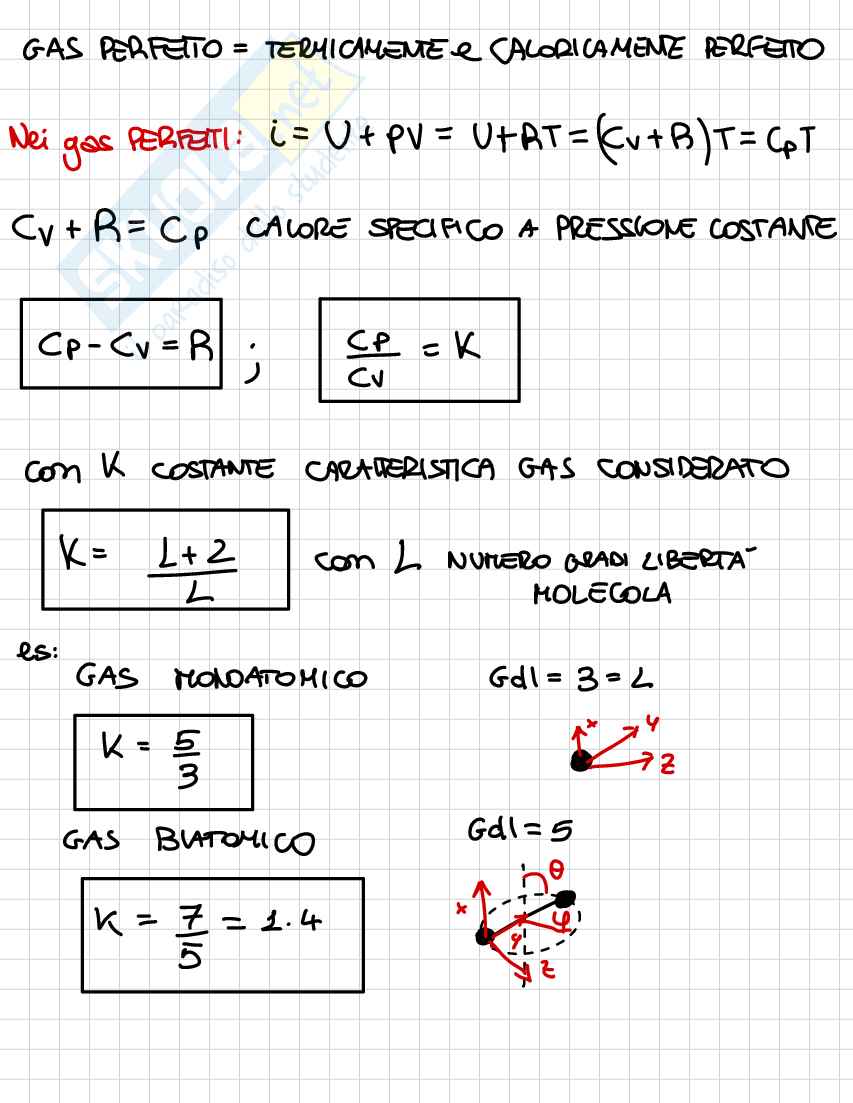 GAS PERFETTO = TERMICAMENTE e CALORICAMENTE PERFETTO
Nei gas PERFETTI: i = U + PV = U + RT = (Cv + R)T = CpT
Cv + R = Cp CALORE SPECIFICO A PRESSIONE COSTANTE
Cp - Cv = R ; Cp/Cv = K
con K COSTANTE CARATTERISTICA GAS CONSIDERATO
K = L+2/L con L NUMERO GRADI LIBERTA'
MOLECOLA
es:
GAS MONOATOMICO Gdl = 3 = L
K = 5/3
x y z
GAS BIATOMICO Gdl = 5
K = 7/5 = 1.4
θ
x y φ
z
SKUOLA.net
paradiso dello studente